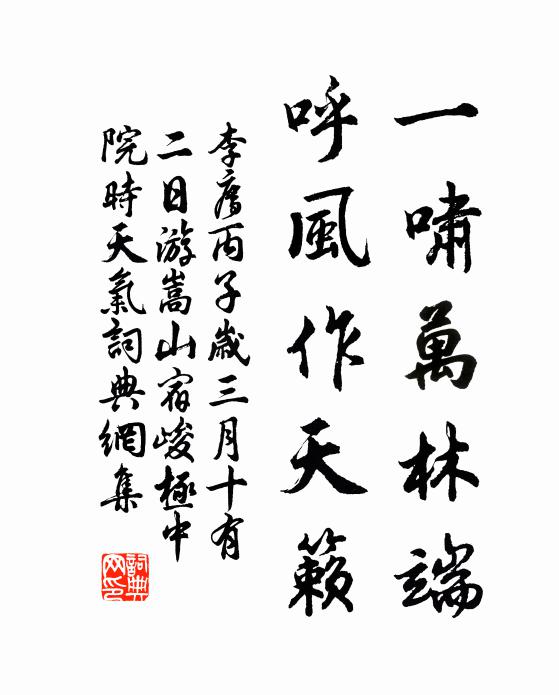 一嘯萬林端
呼風作天籟
李廌丙子歲三月十有
二日游嵩山宿峻極中
院時天氣詞典網集
詞典
网印